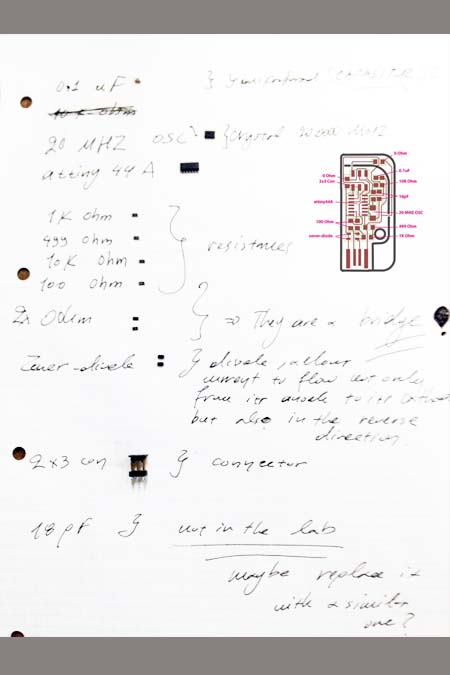 0.1 uF
} CAPACITOR
10 K ohm
20 MHZ OSC } Crystal 20.000 MHZ
attiny 44 A
1K Ohm
499 Ohm
10K Ohm
100 Ohm
} resistances
2x 0 Ohm } => They are a bridge
Zener-diode } diode, allows
current to flow not only
from its anode to its
but also in the reverse
direction
2x3 con } connector
18 pF } not in the lab
maybe replace it
with a similar
one?
0 Ohm
0.1uF
0 Ohm
2x3 Con
10K Ohm
18pf
attiny44A
20 MHZ OSC
100 Ohm
499 Ohm
zener-diode
1K Ohm